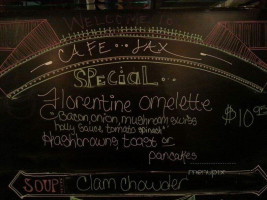 WELCOME TO
CAFE... JAX
SPECIAL...
Florentine omelette
Bacon, onion, mushroom, swiss
holly sauce tomato spinach
$10.95
Hashbrowns toast or
pancakes
menupix
SOUP
Clam chowder